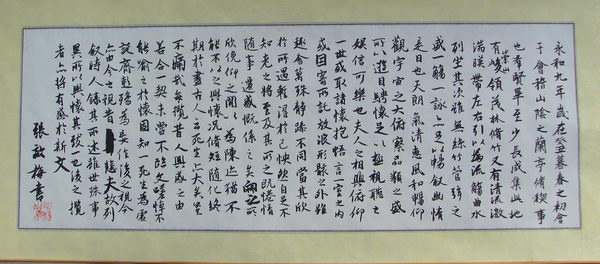 永和九年歲在癸丑暮春之初會
于會稽山陰之蘭亭脩稧事
也羣賢畢至少長咸集此地
有崇山峻領茂林脩竹又有清流激
湍暎帶左右引以為流觴曲水
列坐其次雖無絲竹管弦之
盛一觴一詠亦足以暢敘幽情
是日也天朗氣清惠風和暢仰
觀宇宙之大俯察品類之盛
所以遊目騁懷足以極視聽之
娛信可樂也夫人之相與俯仰
一世或取諸懷抱悟言一室之內
或因寄所託放浪形骸之外雖
趣舍萬殊靜躁不同當其欣
於所遇暫得於己怏然自足不
知老之將至及其所之既惓情
隨事遷感慨係之矣向之所
欣俛仰之間以為陳迹猶不
能不以之興懷況脩短隨化終
期於盡古人云死生亦大矣豈
不痛哉每攬昔人興感之由
若合一契未嘗不臨文嗟悼不
能喻之於懷固知一死生為虛
誕齊彭殤為妄作後之視今
亦由今之視昔悲夫故列
敘時人錄其所述雖世殊事
異所以興懷其致一也後之攬
者亦將有感於斯文
張梅書